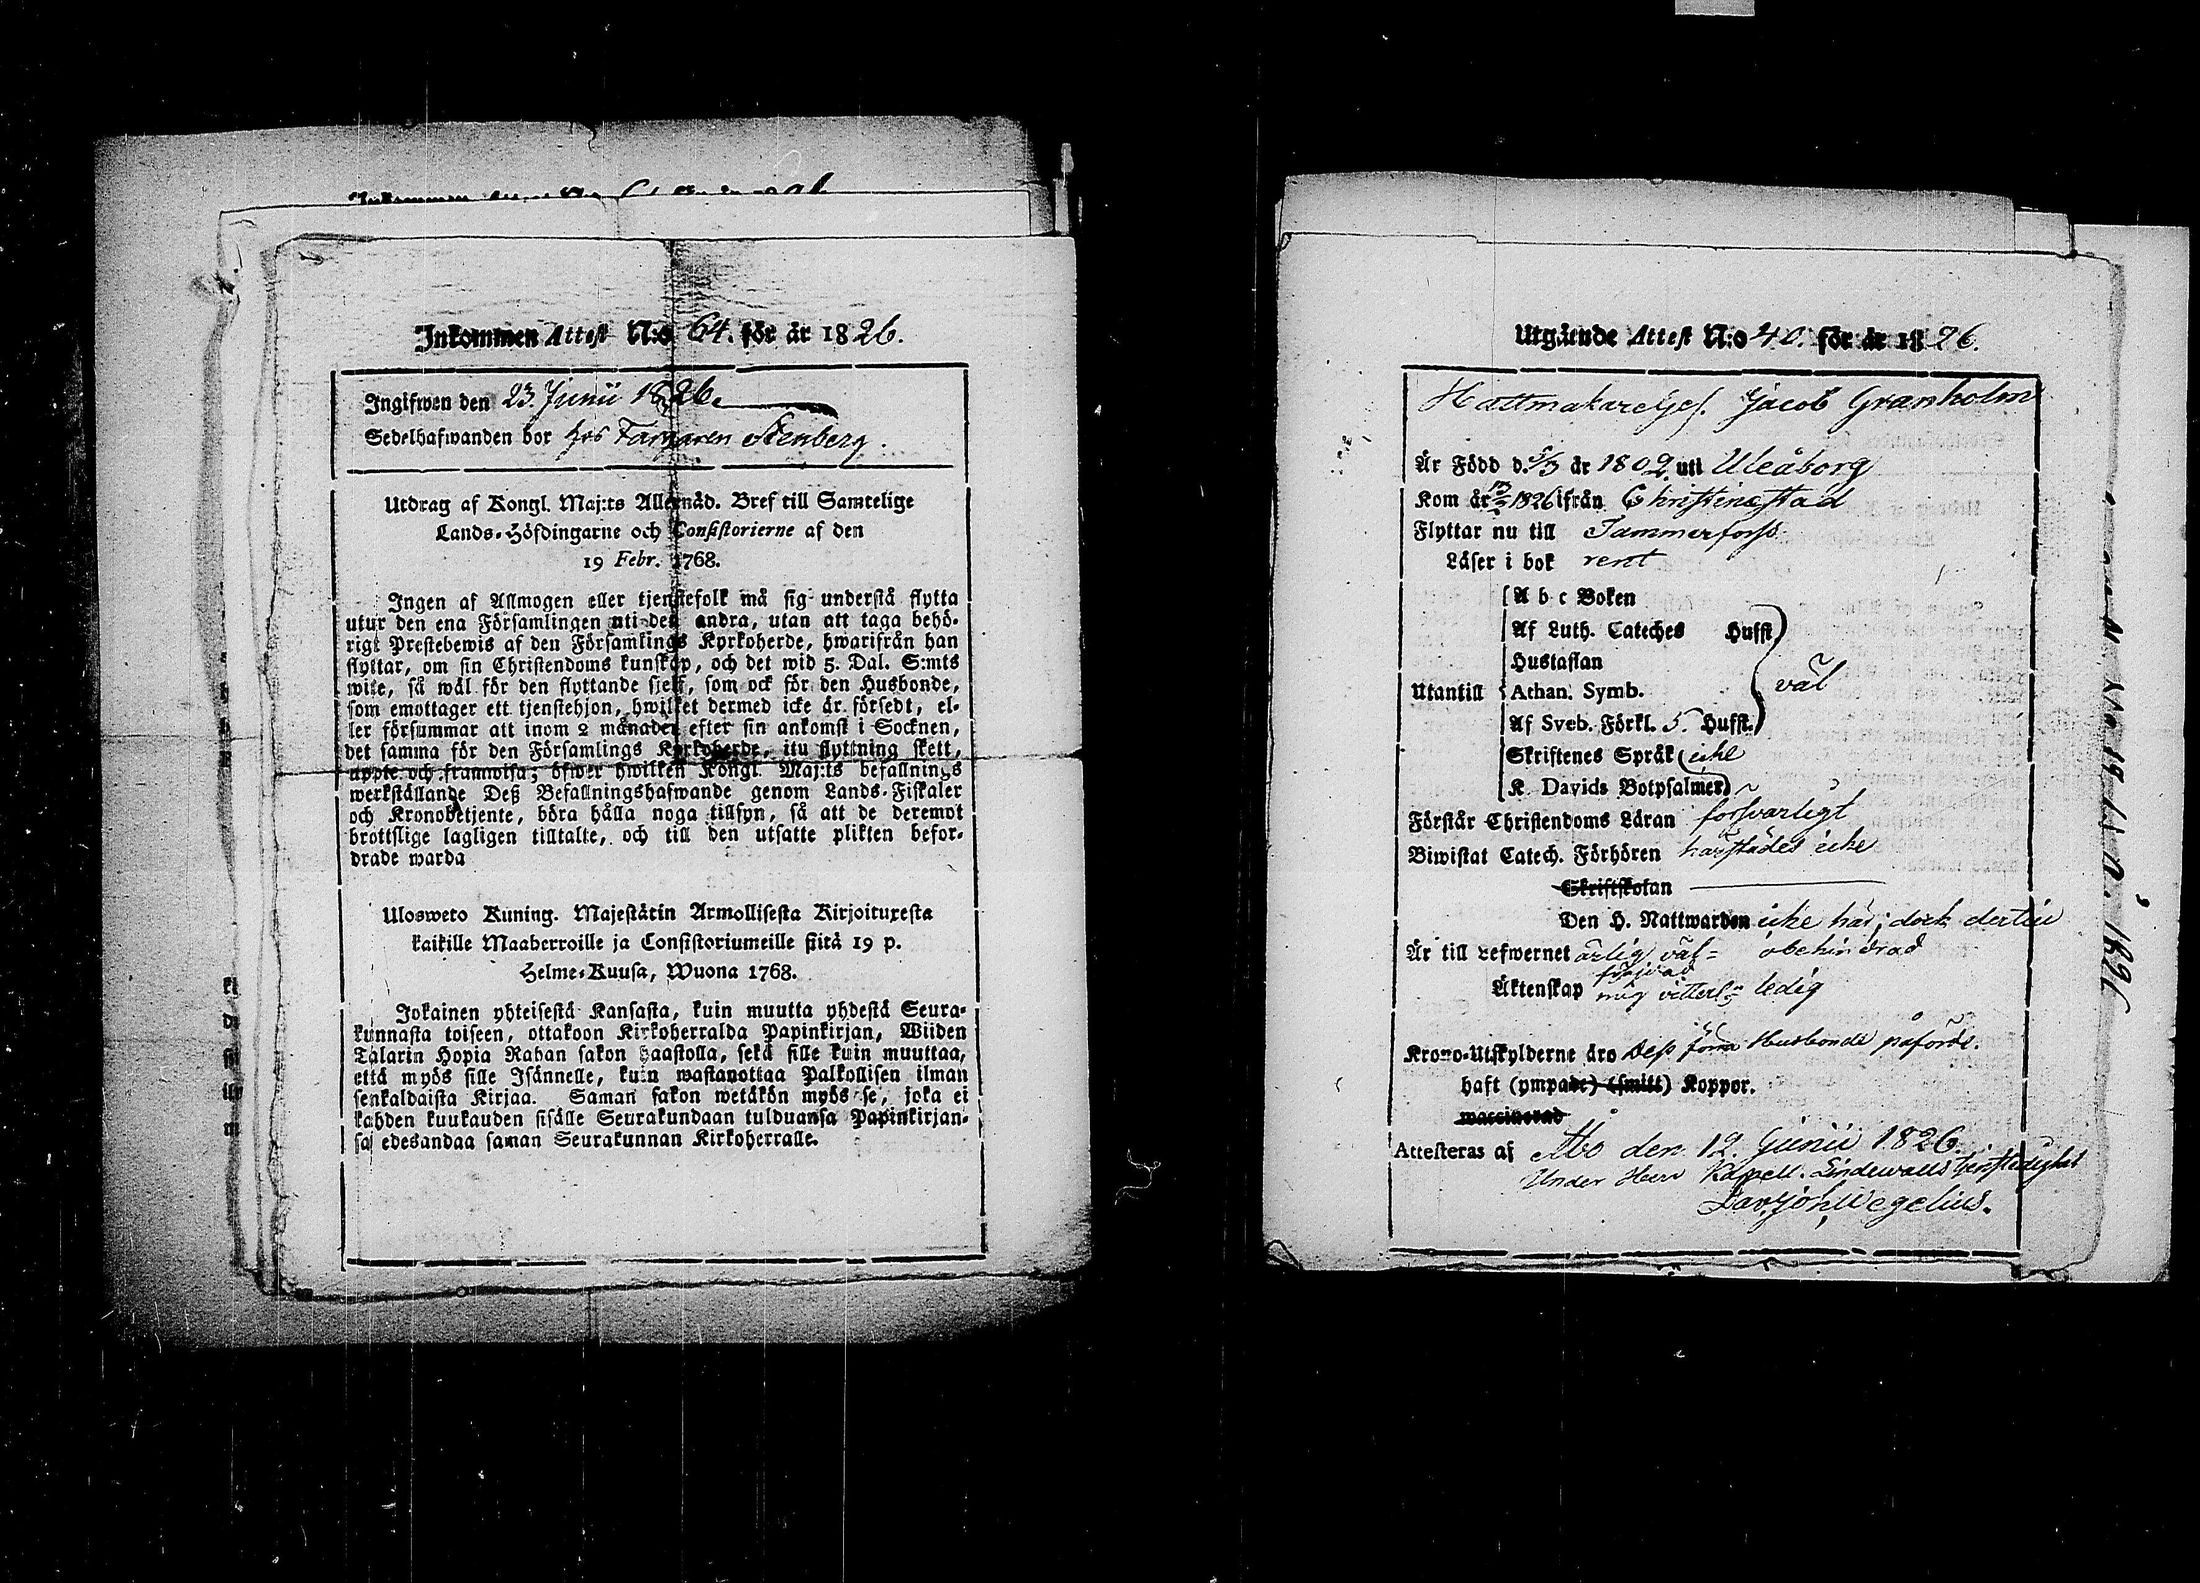 Inkommen Attest N:o 64. för år 1826.
Ingifwen den 23. Junii 1826.
Sedelhafwanden bor hos Farfvaren Stenberg.
Utdrag af Kongl. Maj:ts Allernåd. Bref till Samtelige
Lands-Höfdingarne och Consistorierne af den
19 Febr. 1768.
Ingen af Allmogen eller tjenstefolk må sig understå flytta
utur den ena Församlingen uti den andra, utan att taga behö-
rigt Prestebewis af den Församlings Kyrkoherde, hwarifrån han
flyttar, om sin Christendoms kunskap, och det wid 5. Dal. S:mts
wite, så wäl för den flyttande sjelf, som ock för den Husbonde,
som emottager ett tjenstehjon, hwilket dermed icke är försedt, el-
ler försummar att inom 2 månader efter sin ankomst i Socknen,
det samma för den Församlings Kyrkoherde, itu flyttning skett,
uppte och framwisa; öfwer hwilken Kongl. Maj:ts befallnings
werkställande Deß Befallningshafwande genom Lands-Fiskaler
och Kronobetjente, böra hålla noga tillsyn, så att de deremot
brottslige lagligen tilltalte, och till den utsatte plikten befor-
drade warda
Ulosweto Kuning. Majestätin Armollisesta Kirjoituxesta
kaikille Maaherroille ja Consistoriumeille siitä 19 p.
Helme-Kuusa, Wuona 1768.
Jokainen yhteisestä Kansasta, kuin muutta yhdestä Seura-
kunnasta toiseen, ottakoon Kirkoherralda Papinkirjan, Wiiden
Talarin Hopia Rahan sakon haastolla, sekä sille kuin muuttaa,
että myös sille Isännelle, kuin wastanottaa Palkollisen ilman
senkaldaista Kirjaa. Saman sakon wetäkön myös se, joka ei
kahden kuukauden sisälle Seurakundaan tulduansa Papinkirjan-
sa edesandaa saman Seurakunnan Kirkoherralle.
Utgående Attest N:o 40. för år 1826.
Hattmakare Ges. Jacob Granholm
Är Född d. 5/3 år 1802 uti Uleåborg
Kom år 1826 ifrån Christinestad
Flyttar nu till Tammerforss.
Läser i bok rent
A b c Boken
Af Luth. Cateches Hufst.
Hustaflan
Utantill Athan. Symb. väl
Af Sveb. Förkl. 5. Hufst.
Skriftenes Språk icke
K. Davids Botpsalmer
Förstår Christendoms Läran försvarligt
Biwistat Catech. Förhören härstädes icke
Skriftskolan
Den H. Nattwarden icke här; dock dertill
Är till Lefwernet ärlig, väl- obehindrad
frejdad
Äktenskap mig vitterl: ledig
Krono-Utskylderne äro dess förra Husbonde påförde.
haft (ympade) (smitt) Koppor.
waccinerad
Attesteras af Åbo den 12. Junii 1826.
Under Herr Kapell. Lindewalls tjenstledighet
Dav. Joh. Wegelius.